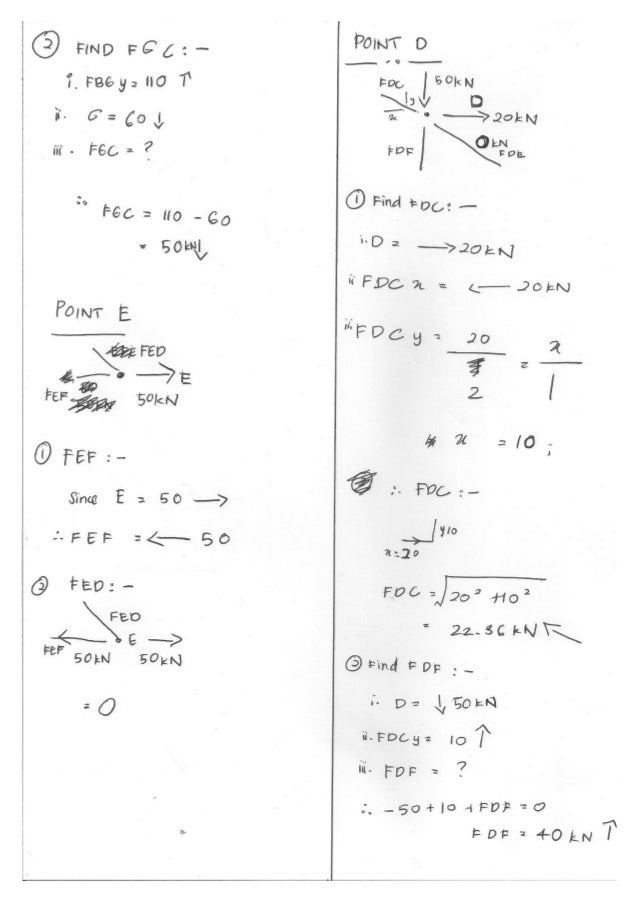 ② FIND FGC :-
i. FBGy = 110 ↑
ii. G = 60 ↓
iii. FGC = ?
∴ FGC = 110 - 60
= 50kN↓
POINT E
FED
E
FEF
50kN
① FEF :-
Since E = 50 →
∴ FEF = ← 50
② FED :-
FED
E
FEF
50kN 50kN
= 0
POINT D
FDC
50kN
y
D
x
20kN
0kN
FDE
FDF
① Find FDC :-
i. D = → 20kN
ii FDC x = ← 20kN
iii. FDC y = 20 / 2 = x / 1
x = 10 ;
∴ FDC :-
y10
x=20
FDC = √20² +10²
= 22.36 kN ↖
② Find FDF :-
i. D = ↓ 50kN
ii. FDCy = 10 ↑
iii. FDF = ?
∴ -50 + 10 + FDF = 0
FDF = 40 kN ↑